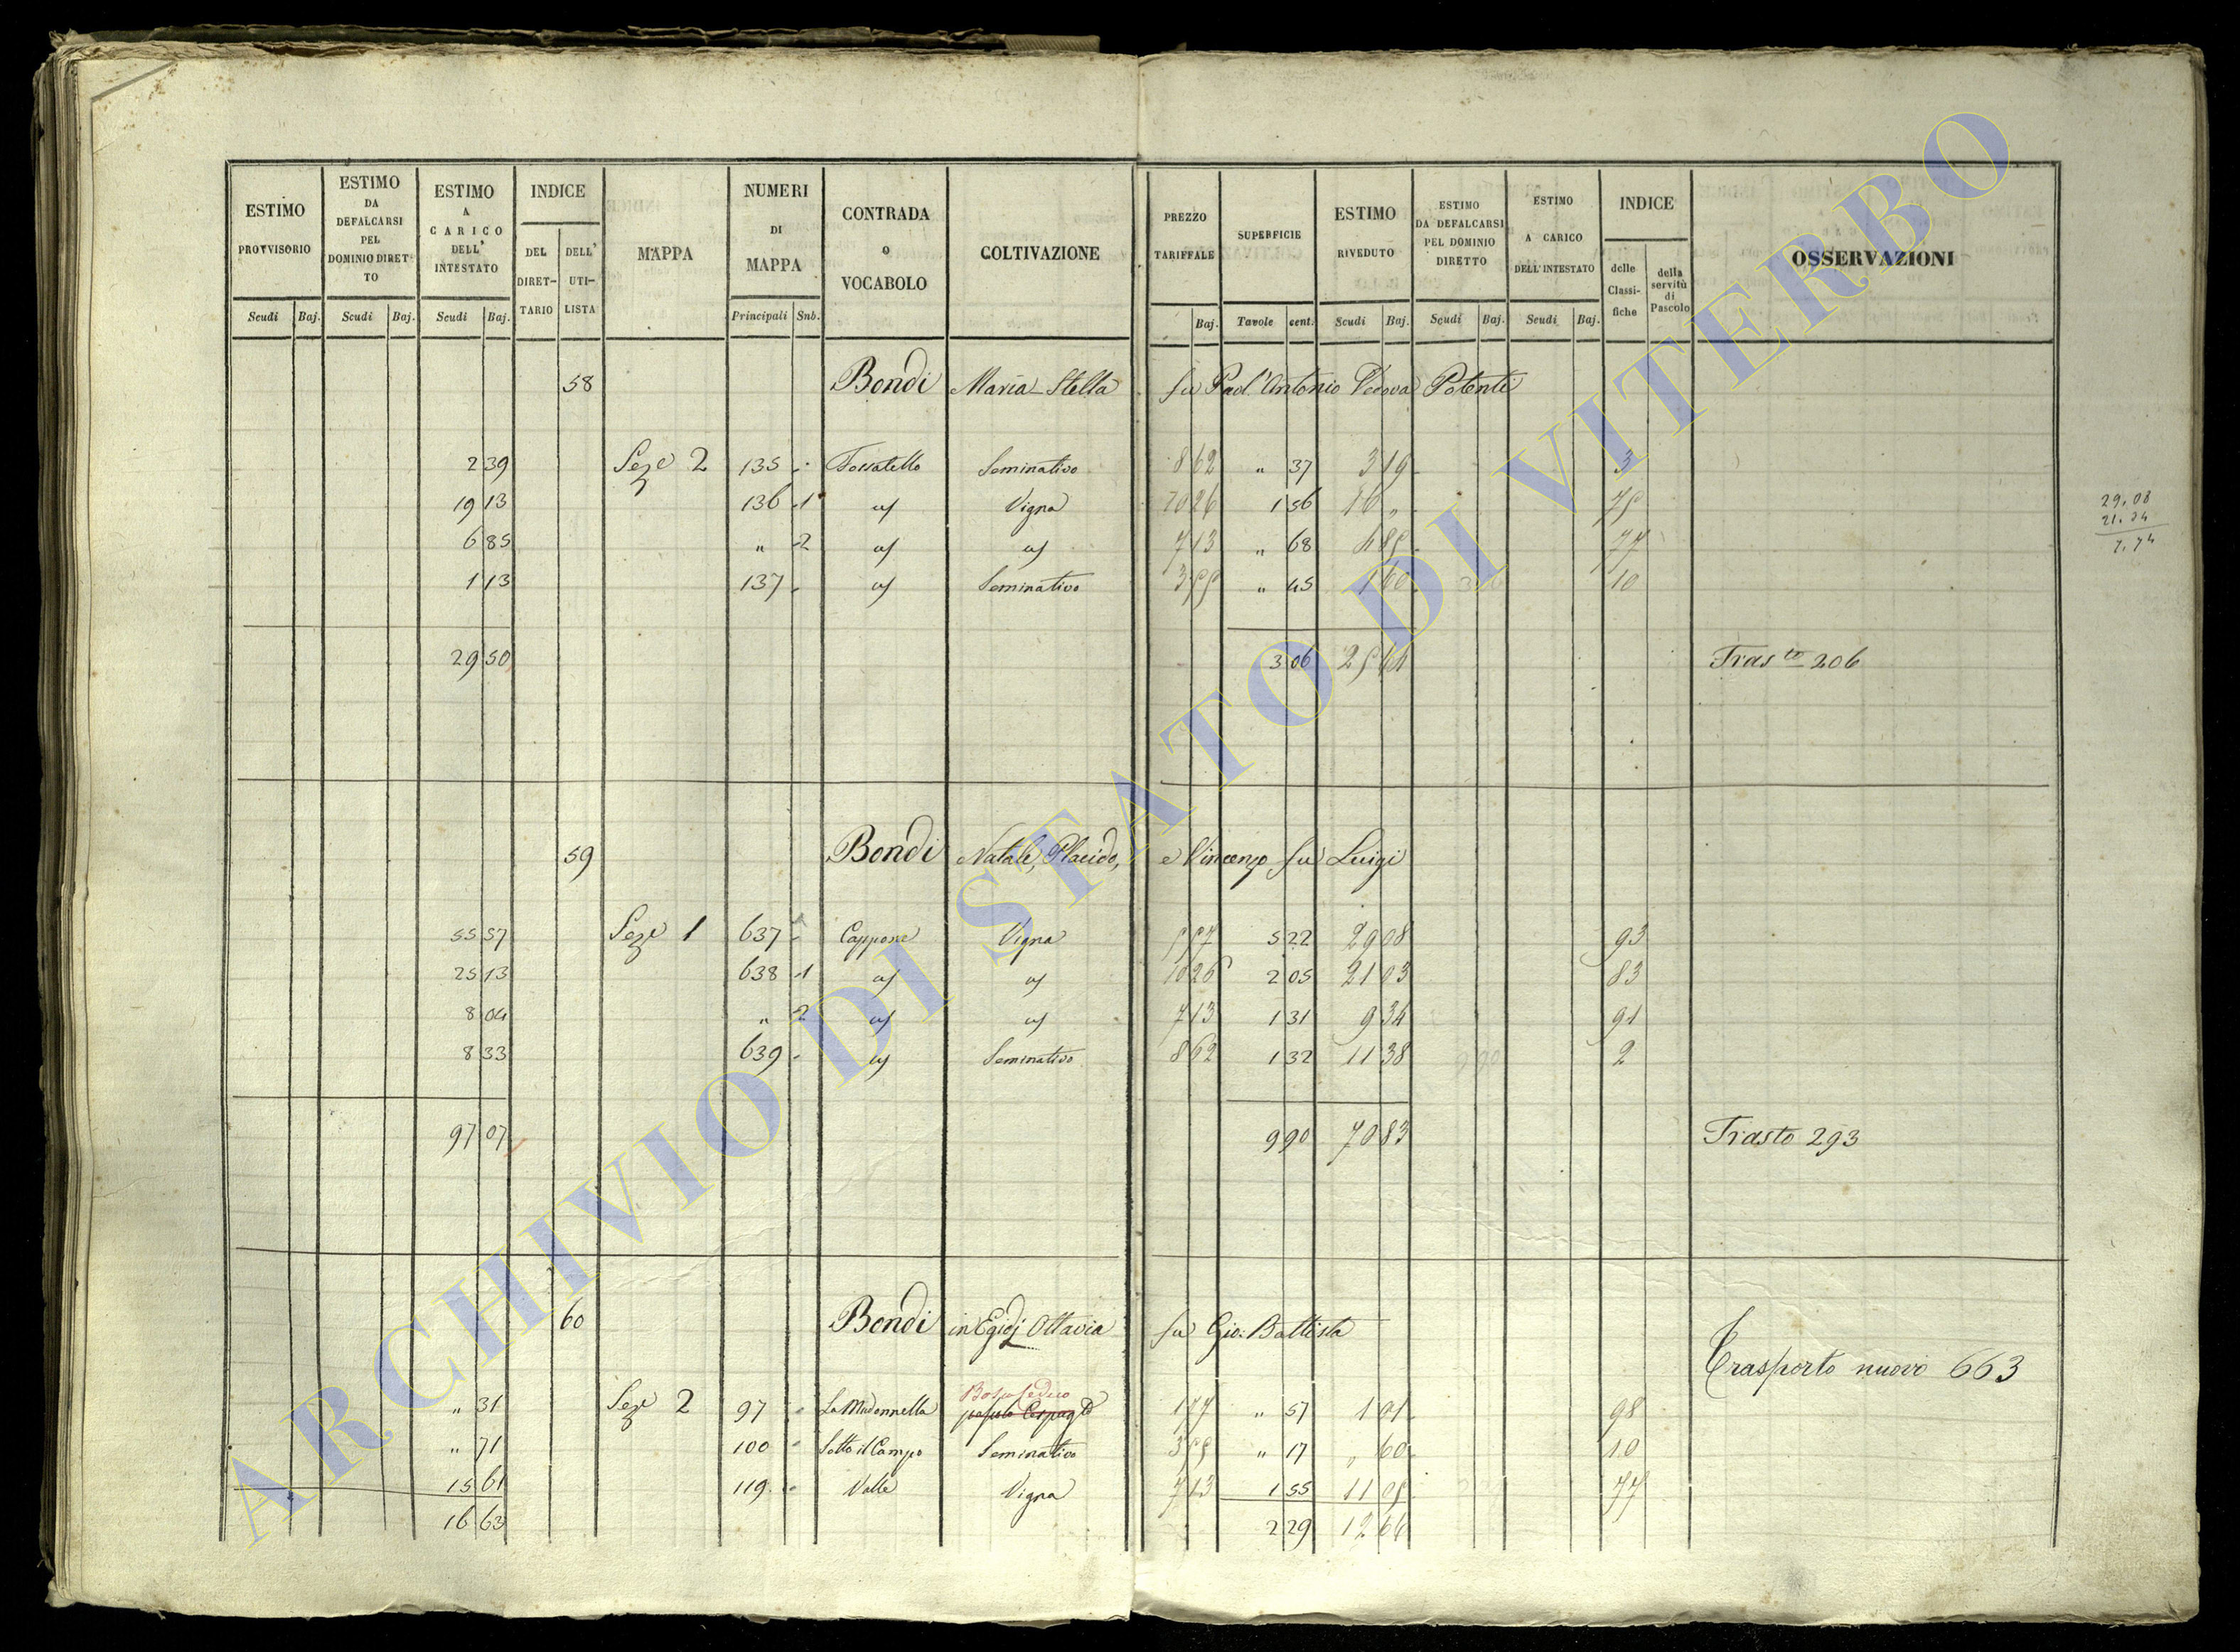 ESTIMO PROVVISORIO
ESTIMO DA DEFALCARSI PEL DOMINIO DIRETTO
ESTIMO A CARICO DELL' INTESTATO
INDICE
DEL DIRET-TARIO
DELL' UTI-LISTA
MAPPA
NUMERI DI MAPPA
CONTRADA O VOCABOLO
COLTIVAZIONE
PREZZO TARIFFALE
SUPERFICIE
ESTIMO RIVEDUTO
ESTIMO DA DEFALCARSI PEL DOMINIO DIRETTO
ESTIMO A CARICO DELL' INTESTATO
INDICE
delle Classi-fiche
della servitù di Pascolo
OSSERVAZIONI
Scudi Baj. Scudi Baj. Scudi Baj. Principali Sub. Baj. Tavole cent. Scudi Baj. Scudi Baj. Scudi Baj.
58 Bondi Maria Stella fu Paol'Antonio Vedova Potenti
2 39 Seze 2 135 Fossatello Seminativo 8 62 " 37 3 19 3
19 13 136 1 Vigna 10 26 1 56 16 " 75
6 85 " 2 7 13 " 68 4 85 77
1 13 137 Seminativo 3 55 " 45 1 60 10
29 50 3 06 25 64 Tras to 206
29.08
21.34
7.74
59 Bondi Natale, Placido, e Vincenzo fu Luigi
55 57 Seze 1 637 Cappone Vigna 5 57 5 22 29 08 93
25 13 638 1 10 26 2 05 21 03 83
8 04 " 2 7 13 1 31 9 34 91
8 33 639 Seminativo 8 62 1 32 11 38 2
97 07 9 90 70 83 Trasto 293
60 Bondi in Egidj Ottavia fu Gio: Battista
Trasporto nuovo 663
Bosco Ceduo
" 31 Seze 2 97 La Madonnella pascolo Cespug to 1 77 " 57 1 01 98
" 71 100 Sotto il Campo Seminativo 3 55 " 17 " 60 10
15 61 119 Valle Vigna 7 13 1 55 11 05 77
16 63 2 29 12 66
ARCHIVIO DI STATO DI VITERBO